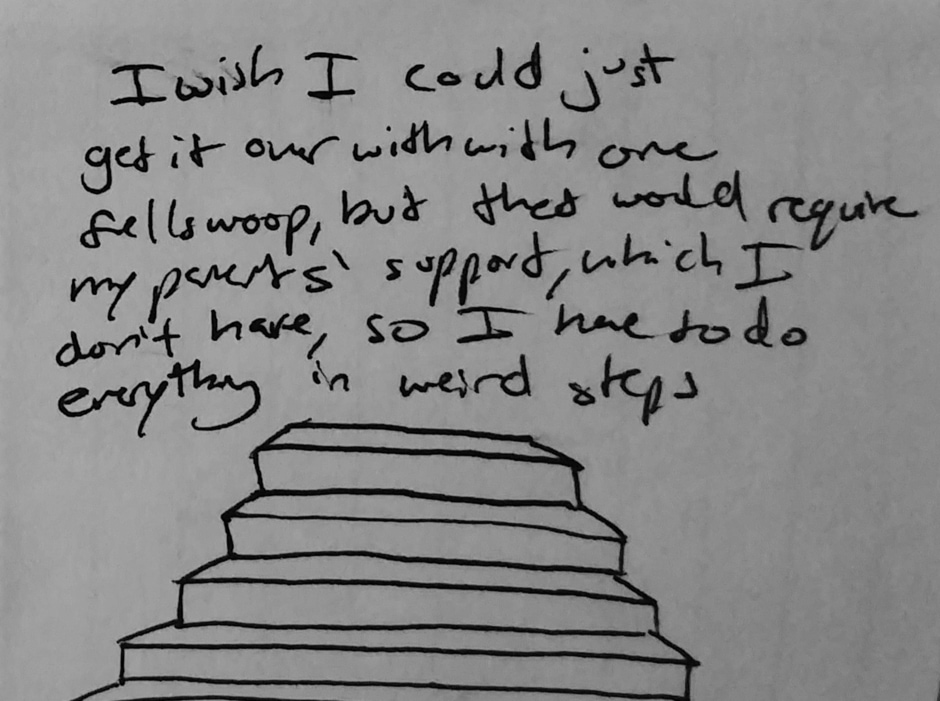 I wish I could just
get it over with with one
fell swoop, but that would require
my parents' support, which I
don't have, so I have to do
everything in weird steps